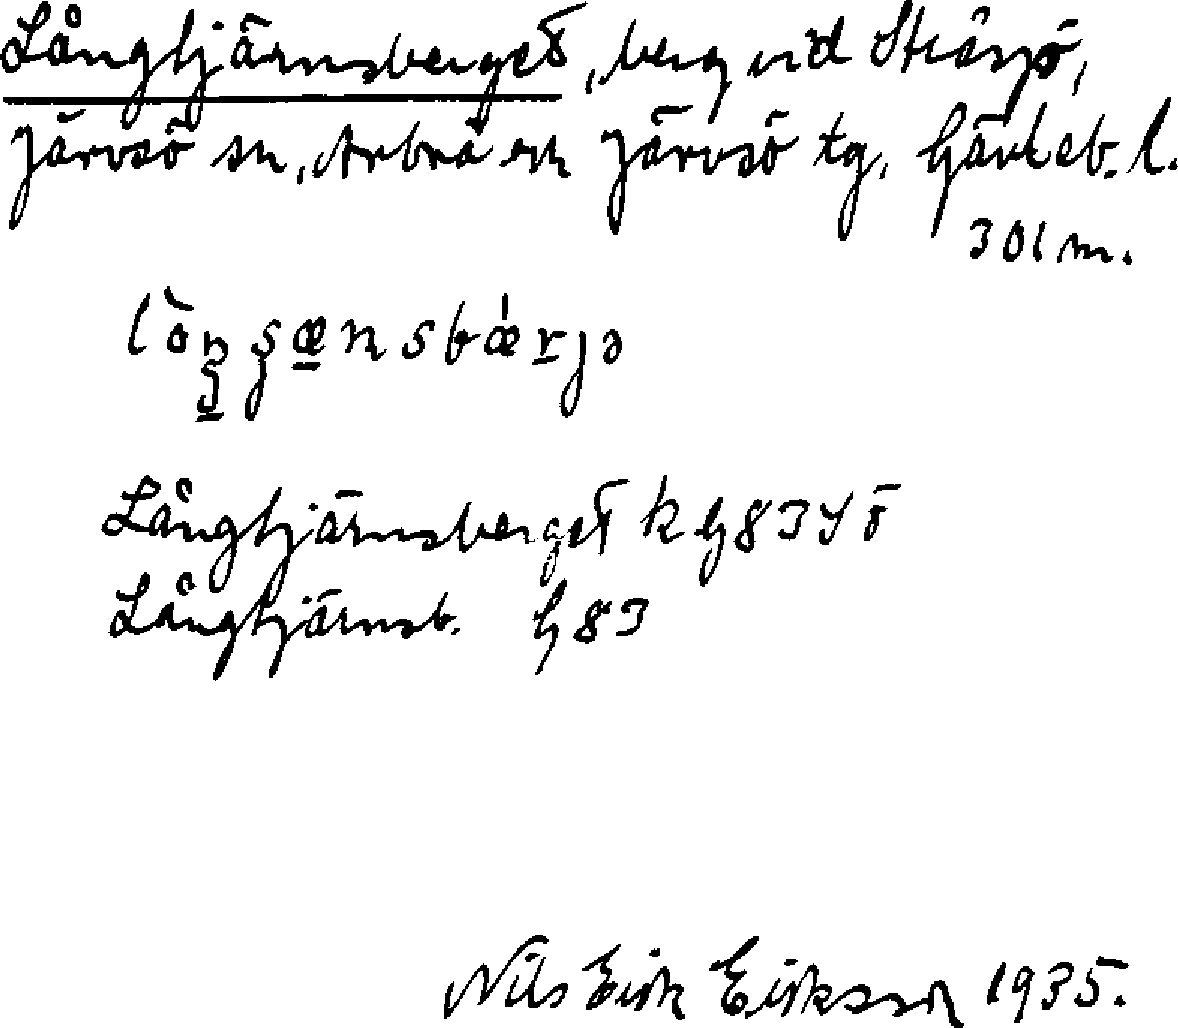 Långtjärnsberget, berg vid Stråsjö,
Järvsö sn, Arbrå och Järvsö tg, Gävleb. l.
301 m.
Långtjärnsberget k G 83 SÖ
Långtjärnsb. G 83
Nils Erik Eriksson 1935.